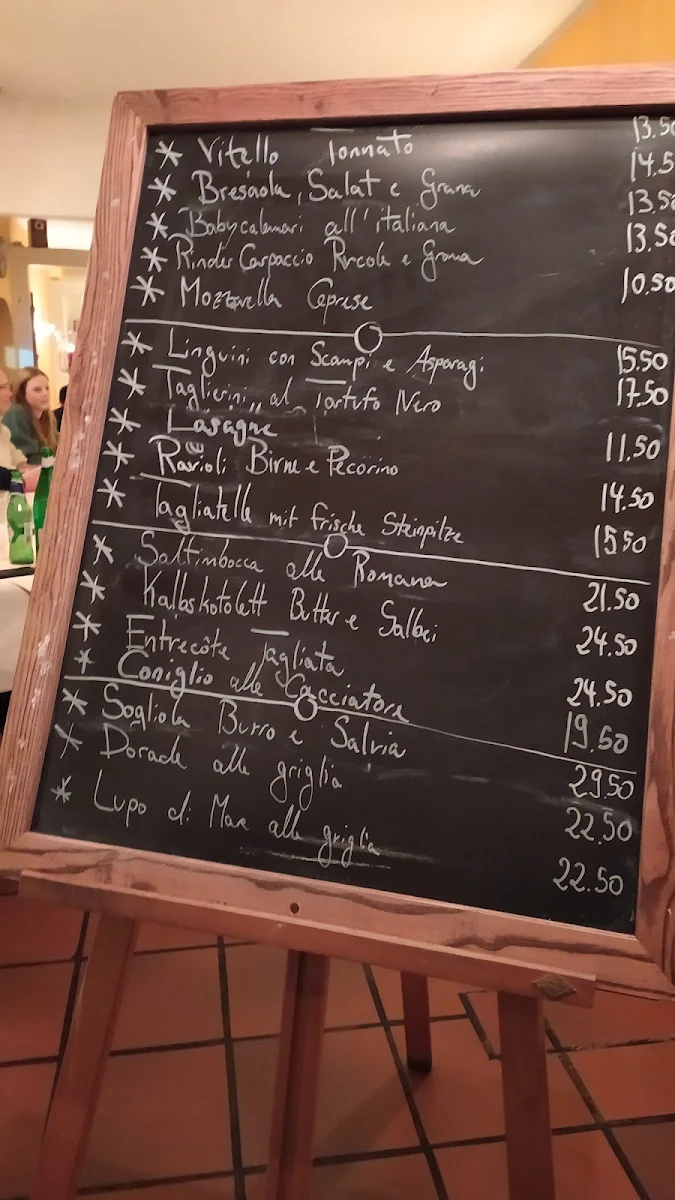 * Vitello Tonnato 13.50
* Bresaola, Salat e Grana 14.5
* Babycalamari all'italiana 13.50
* Rinder Carpaccio Rucola e Grana 13.50
* Mozzarella Caprese 10.50
* Linguini con Scampi e Asparagi 15.50
* Taglierini al Tartufo Nero 17.50
* Lasagne 11.50
* Ravioli Birne e Pecorino 14.50
* Tagliatelle mit frische Steinpilze 15.50
* Saltimbocca alla Romana 21.50
* Kalbskotelett Butter e Salbei 24.50
* Entrecôte Tagliata 24.50
* Coniglio alla Cacciatora 19.50
* Sogliola Burro e Salvia 29.50
* Dorade alla griglia 22.50
* Lupo di Mare alla griglia 22.50